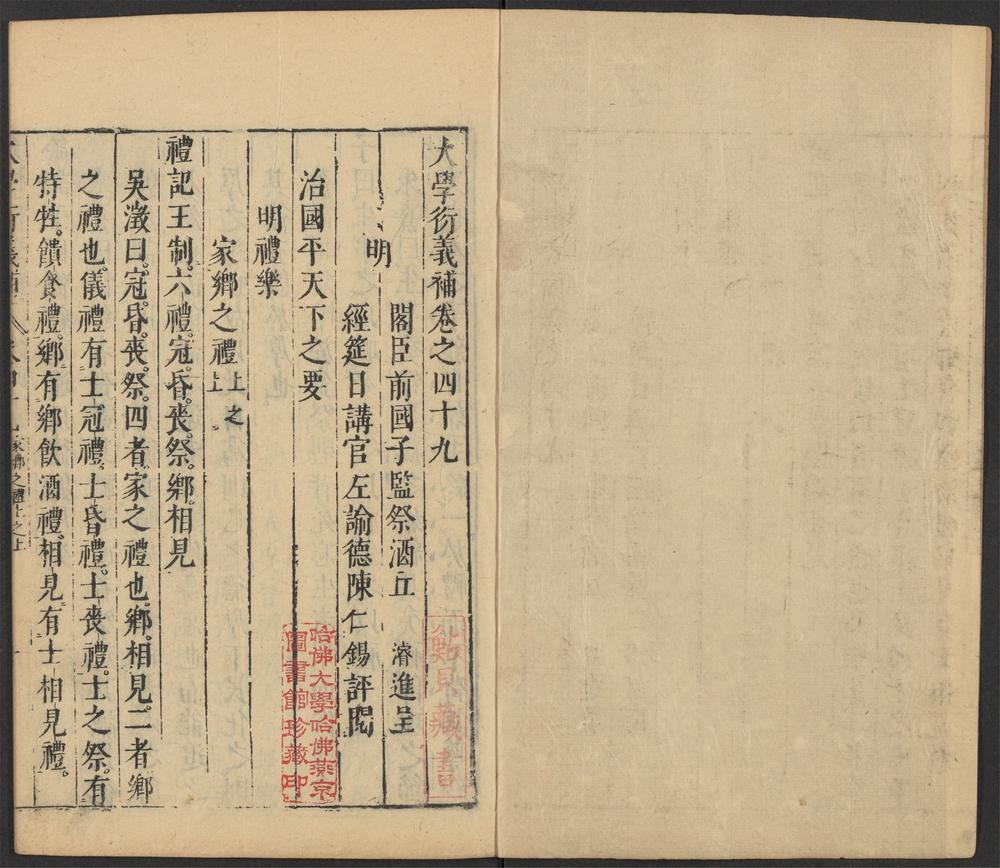 大學衍義補卷之四十九
明
閣臣前國子監祭酒丘 濬進呈
經筵日講官左諭德陳仁錫評閱
治國平天下之要
明禮樂
家鄉之禮上之上
禮記王制。六禮。冠。昏。喪。祭。鄉。相見
吳澂曰。冠。昏。喪。祭。四者。家之禮也。鄉。相見。二者鄉
之禮也。儀禮有士冠禮。士昏禮。士喪禮。士之祭。有
特牲。饋食禮。鄉有鄉飲酒禮。相見有士相見禮。
家鄉之禮上之上
哈佛大學哈佛燕京
圖書館珍藏印
藏書